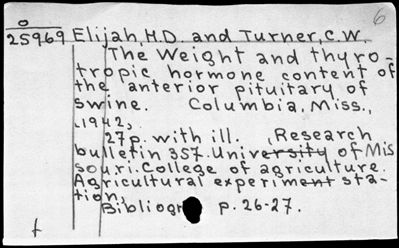 6
O
25969 Elijah, H.D. and Turner, C.W.
The Weight and thyro-
tropic hormone content of
the anterior pituitary of
swine. Columbia, Miss.,
1942,
27p. with ill. (Research
bulletin 357. University of Mis
souri. College of agriculture.
Agricultural experiment sta-
tion.)
Bibliogr p. 26-27.
f